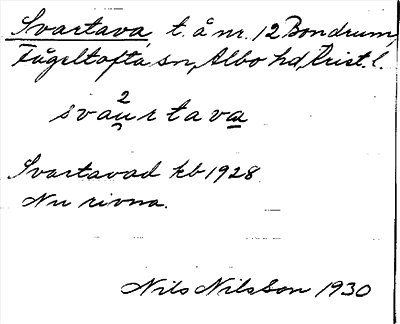 Svartava, t. å nr. 12 Bondrum,
Fågeltofta sn, Albo hd, Krist. l.
2
svaurtava
Svartavad kb 1928.
Nu rivna.
Nils Nilsson 1930